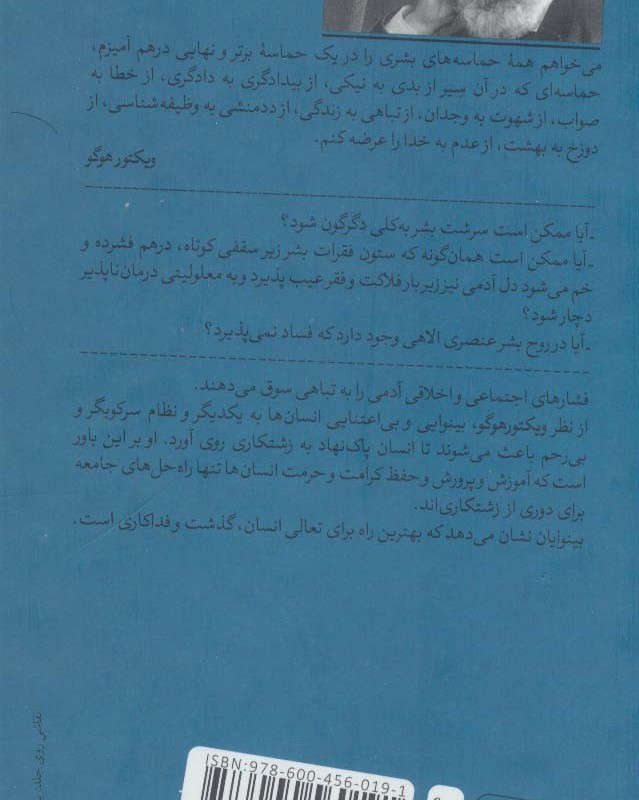 می‌خواهم همهٔ حماسه‌های بشری را در یک حماسهٔ برتر و نهایی درهم آمیزم،
حماسه‌ای که در آن سیر از بدی به نیکی، از بیدادگری به دادگری، از خطا به
صواب، از شهوت به وجدان، از تباهی به زندگی، از ددمنشی به وظیفه‌شناسی، از
دوزخ به بهشت، از عدم به خدا را عرضه کنم.
ویکتور هوگو
ـ آیا ممکن است سرشت بشر به‌کلی دگرگون شود؟
ـ آیا ممکن است همان‌گونه که ستون فقرات بشر زیر سقفی کوتاه، درهم فشرده و
خم می‌شود دل آدمی نیز زیر بار فلاکت و فقر عیب پذیرد و به معلولیتی درمان‌ناپذیر
دچار شود؟
ـ آیا در روح بشر عنصری الاهی وجود دارد که فساد نمی‌پذیرد؟
فشارهای اجتماعی و اخلاقی آدمی را به تباهی سوق می‌دهند.
از نظر ویکتورهوگو، بینوایی و بی‌اعتنایی انسان‌ها به یکدیگر و نظام سرکوبگر و
بی‌رحم باعث می‌شوند تا انسان پاک‌نهاد به زشتکاری روی آورد. او بر این باور
است که آموزش و پرورش و حفظ کرامت و حرمت انسان‌ها تنها راه‌حل‌های جامعه
برای دوری از زشتکاری‌اند.
بینوایان نشان می‌دهد که بهترین راه برای تعالی انسان، گذشت و فداکاری است.
نقاشی روی جلد:
ISBN:978-600-456-019-1